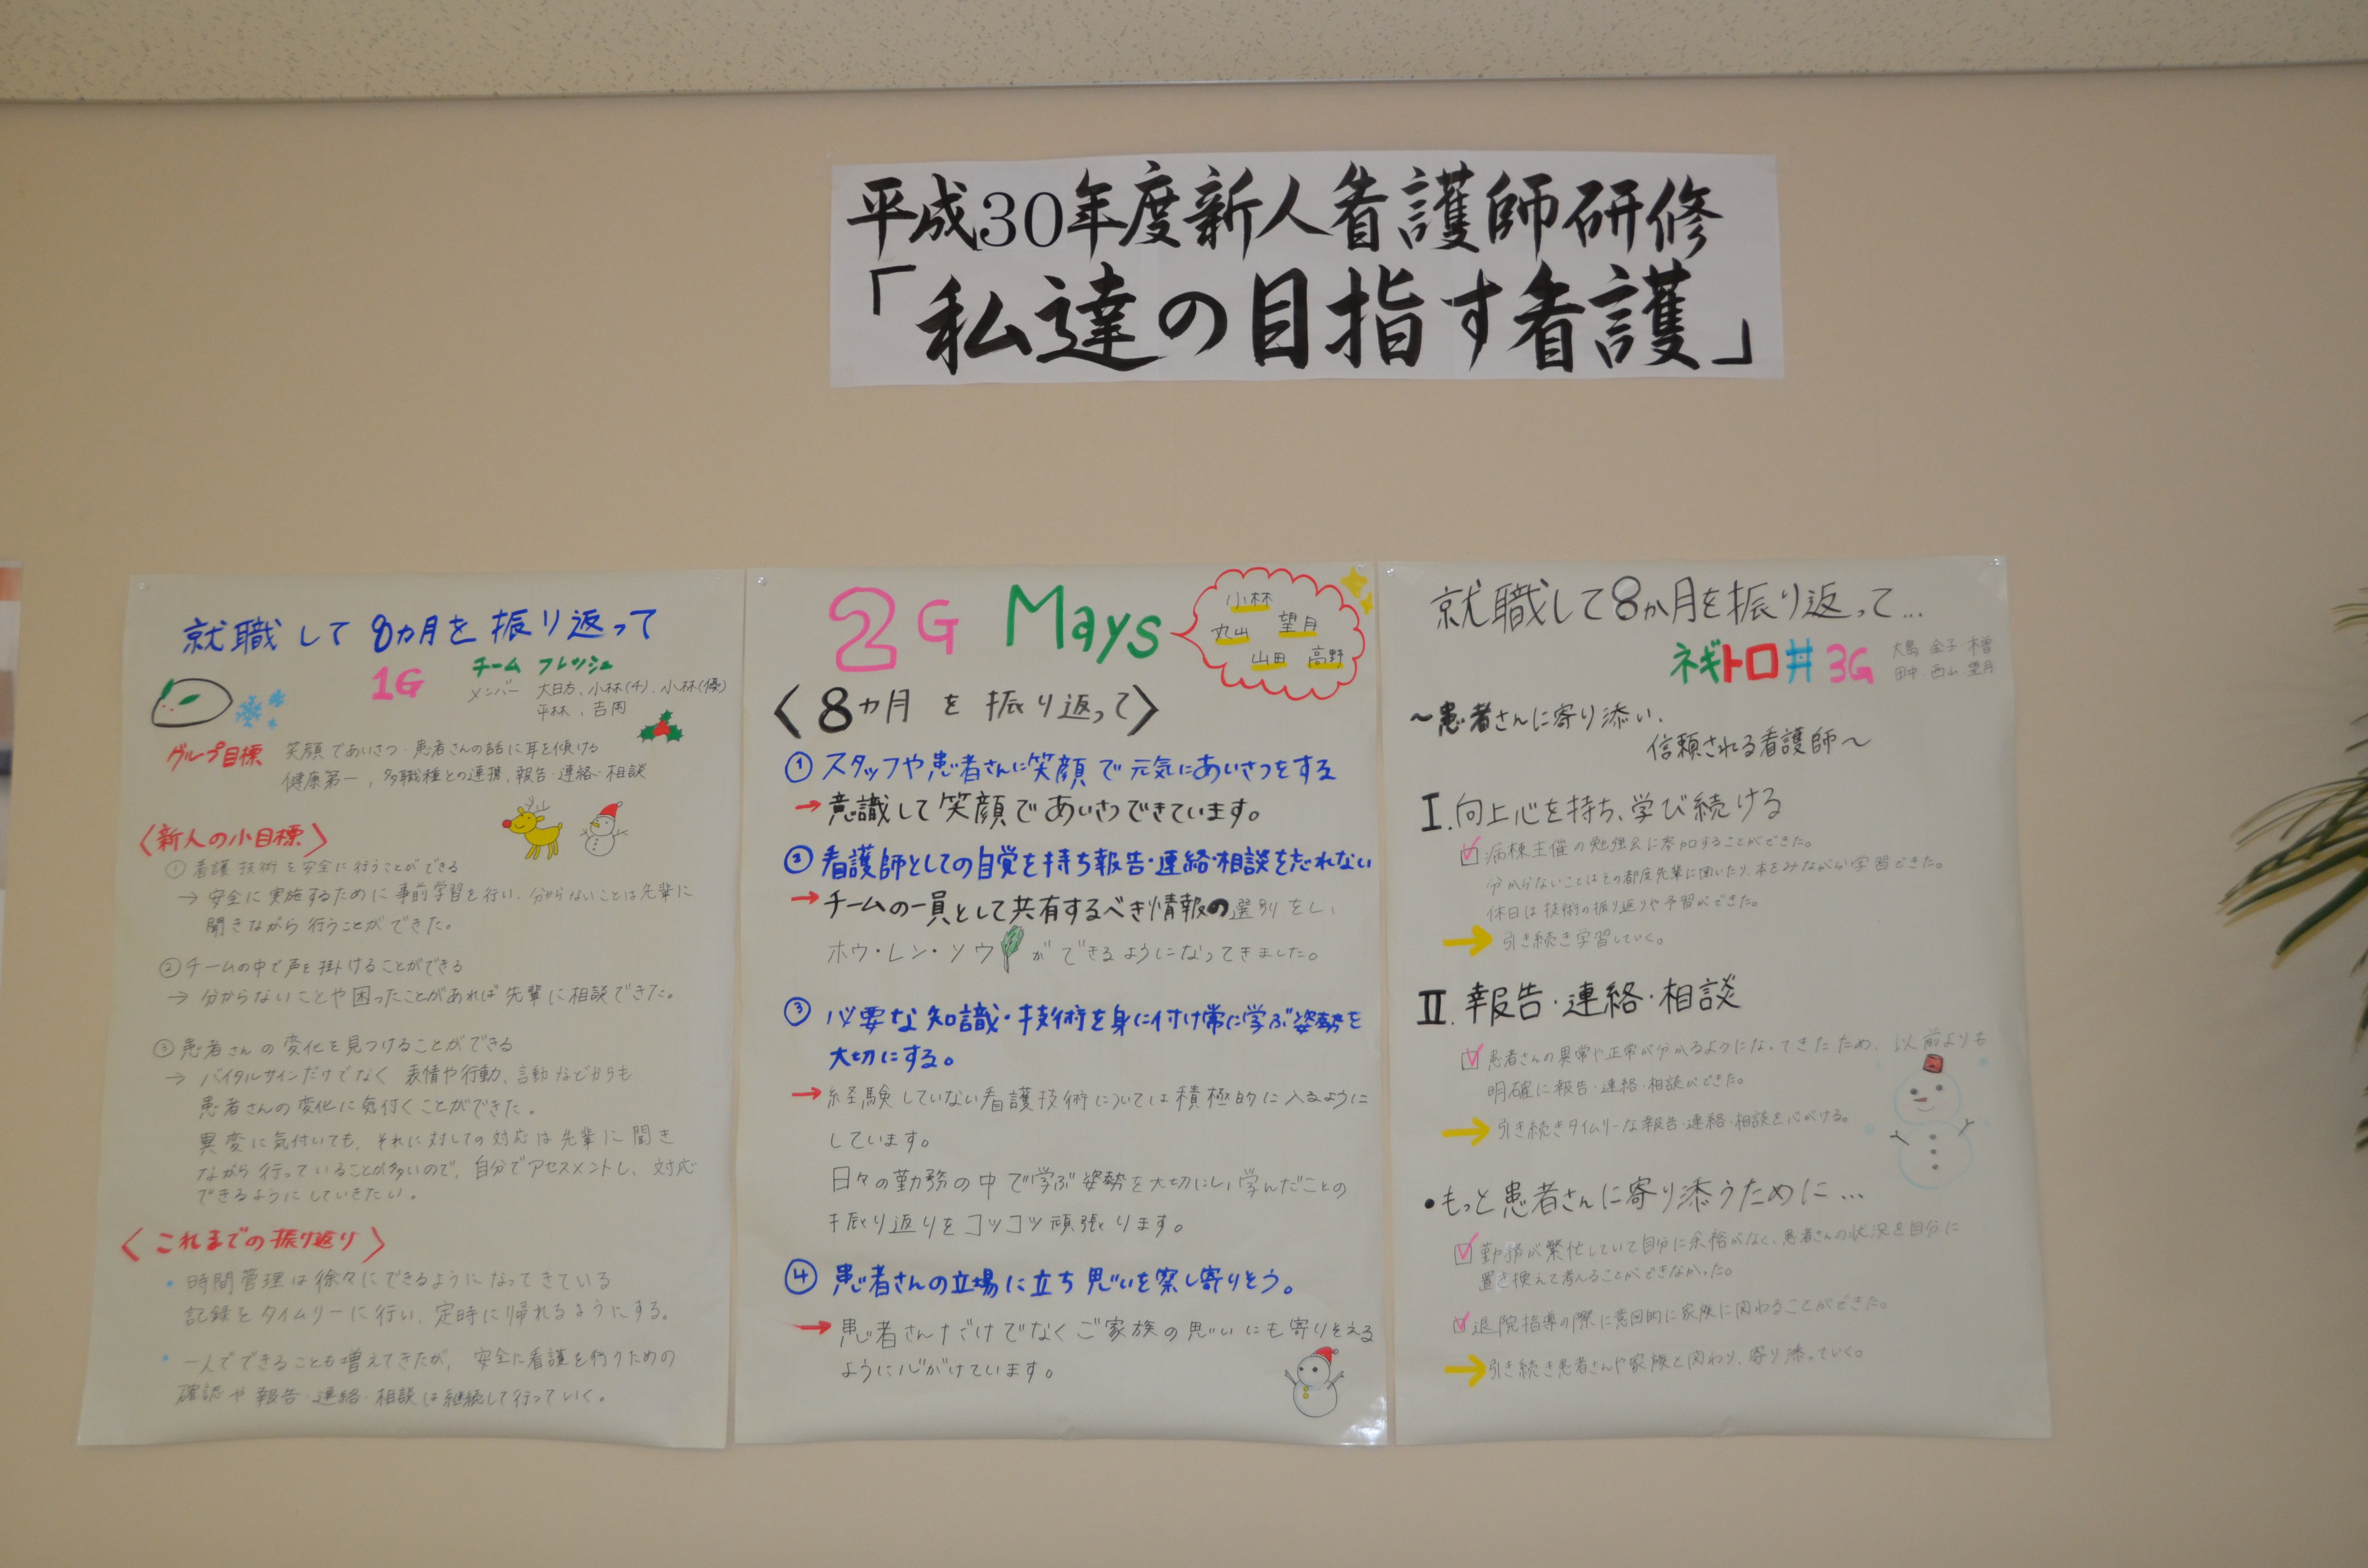 平成30年度新人看護師研修
「私達の目指す看護」
就職して8カ月を振り返って
1G
チーム フレッシュ
メンバー 大日方、小林(千)、小林(優)
平林、吉岡
グループ目標 笑顔であいさつ・患者さんの話に耳を傾ける
健康第一、多職種との連携、報告・連絡・相談
〈新人の小目標〉
① 看護技術を安全に行うことができる
→ 安全に実施するために事前学習を行い、分からないことは先輩に
聞きながら行うことができた。
② チームの中で声を掛けることができる
→ 分からないことや困ったことがあれば先輩に相談できた。
③ 患者さんの変化を見つけることができる
→ バイタルサインだけでなく 表情や行動、言動などからも
患者さんの変化に気付くことができた。
異変に気付いても、それに対しての対応は先輩に聞き
ながら行っていることが多いので、自分でアセスメントし、対応
できるようにしていきたい。
〈これまでの振り返り〉
・時間管理は徐々にできるようになってきている
記録をタイムリーに行い、定時に帰れるようにする。
・一人でできることも増えてきたが、安全に看護を行うための
確認や報告・連絡・相談は継続して行っていく。
2G Mays
小林
丸山 望月
山田 高野
〈8カ月を振り返って〉
① スタッフや患者さんに笑顔で元気にあいさつをする
→ 意識して笑顔であいさつできています。
② 看護師としての自覚を持ち報告・連絡・相談を忘れない
→ チームの一員として共有するべき情報の選別をし、
ホウ・レン・ソウができるようになってきました。
③ 必要な知識・技術を身に付け常に学ぶ姿勢を
大切にする。
→ 経験していない看護技術については積極的に入るように
しています。
日々の勤務の中で学ぶ姿勢を大切にし、学んだことの
振り返りをコツコツ頑張ります。
④ 患者さんの立場に立ち思いを察し寄りそう。
→ 患者さんだけでなくご家族の思いにも寄りそえる
ように心がけています。
就職して8か月を振り返って…
ネギトロ丼 3G
大島 金子 木曽
田中 西山 望月
〜患者さんに寄り添い、
信頼される看護師〜
I. 向上心を持ち、学び続ける
☑ 病棟主催の勉強会に参加することができた。
分からないことはその都度先輩に聞いたり、本をみながら学習できた。
休日は技術の振り返りや予習ができた。
→ 引き続き学習していく。
II. 報告・連絡・相談
☑ 患者さんの異常や正常が分かるようになってきたため、以前よりも
明確に報告・連絡・相談ができた。
→ 引き続きタイムリーな報告・連絡・相談を心がける。
・もっと患者さんに寄り添うために…
☑ 勤務が繁忙していて自分に余裕がなく、患者さんの状況を自分に
置き換えて考えることができなかった。
☑ 退院指導の際に意図的に家族に関わることができた。
→ 引き続き患者さんや家族と関わり、寄り添っていく。